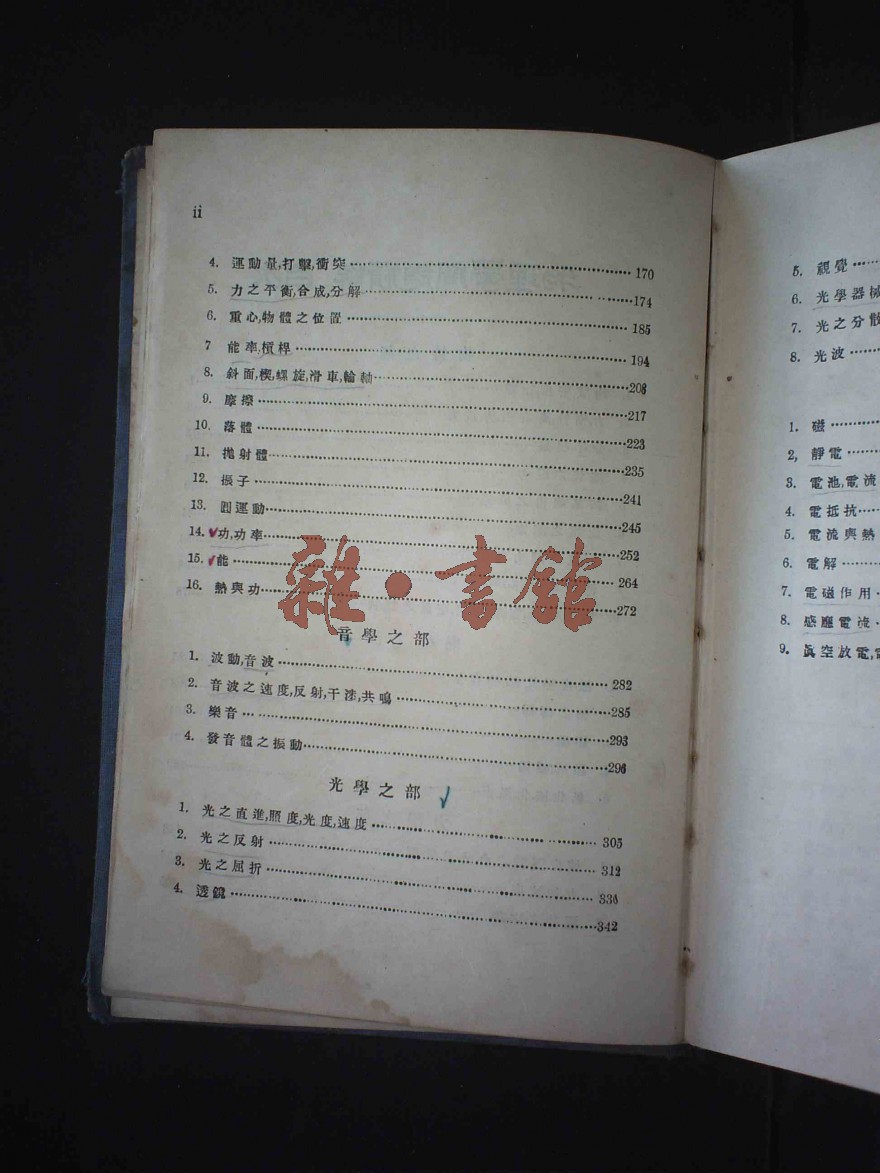 ii
4. 運動量,打擊,衝突 170
5. 力之平衡,合成,分解 174
6. 重心,物體之位置 185
7 能率,槓桿 194
8. 斜面,楔,螺旋,滑車,輪軸 208
9. 摩擦 217
10. 落體 223
11. 拋射體 235
12. 振子 241
13. 圓運動 245
14. 功,功率 252
15. 能 264
16. 熱與功 272
雜·書館
音學之部
1. 波動,音波 282
2. 音波之速度,反射,干涉,共鳴 285
3. 樂音 293
4. 發音體之振動 296
光學之部
1. 光之直進,照度,光度,速度 305
2. 光之反射 312
3. 光之屈折 330
4. 透鏡 342
5. 視覺
6. 光學器械
7. 光之分散
8. 光波
1. 磁
2, 靜電
3. 電池,電流
4. 電抵抗
5. 電流與熱
6. 電解
7. 電磁作用
8. 感應電流
9. 眞空放電,